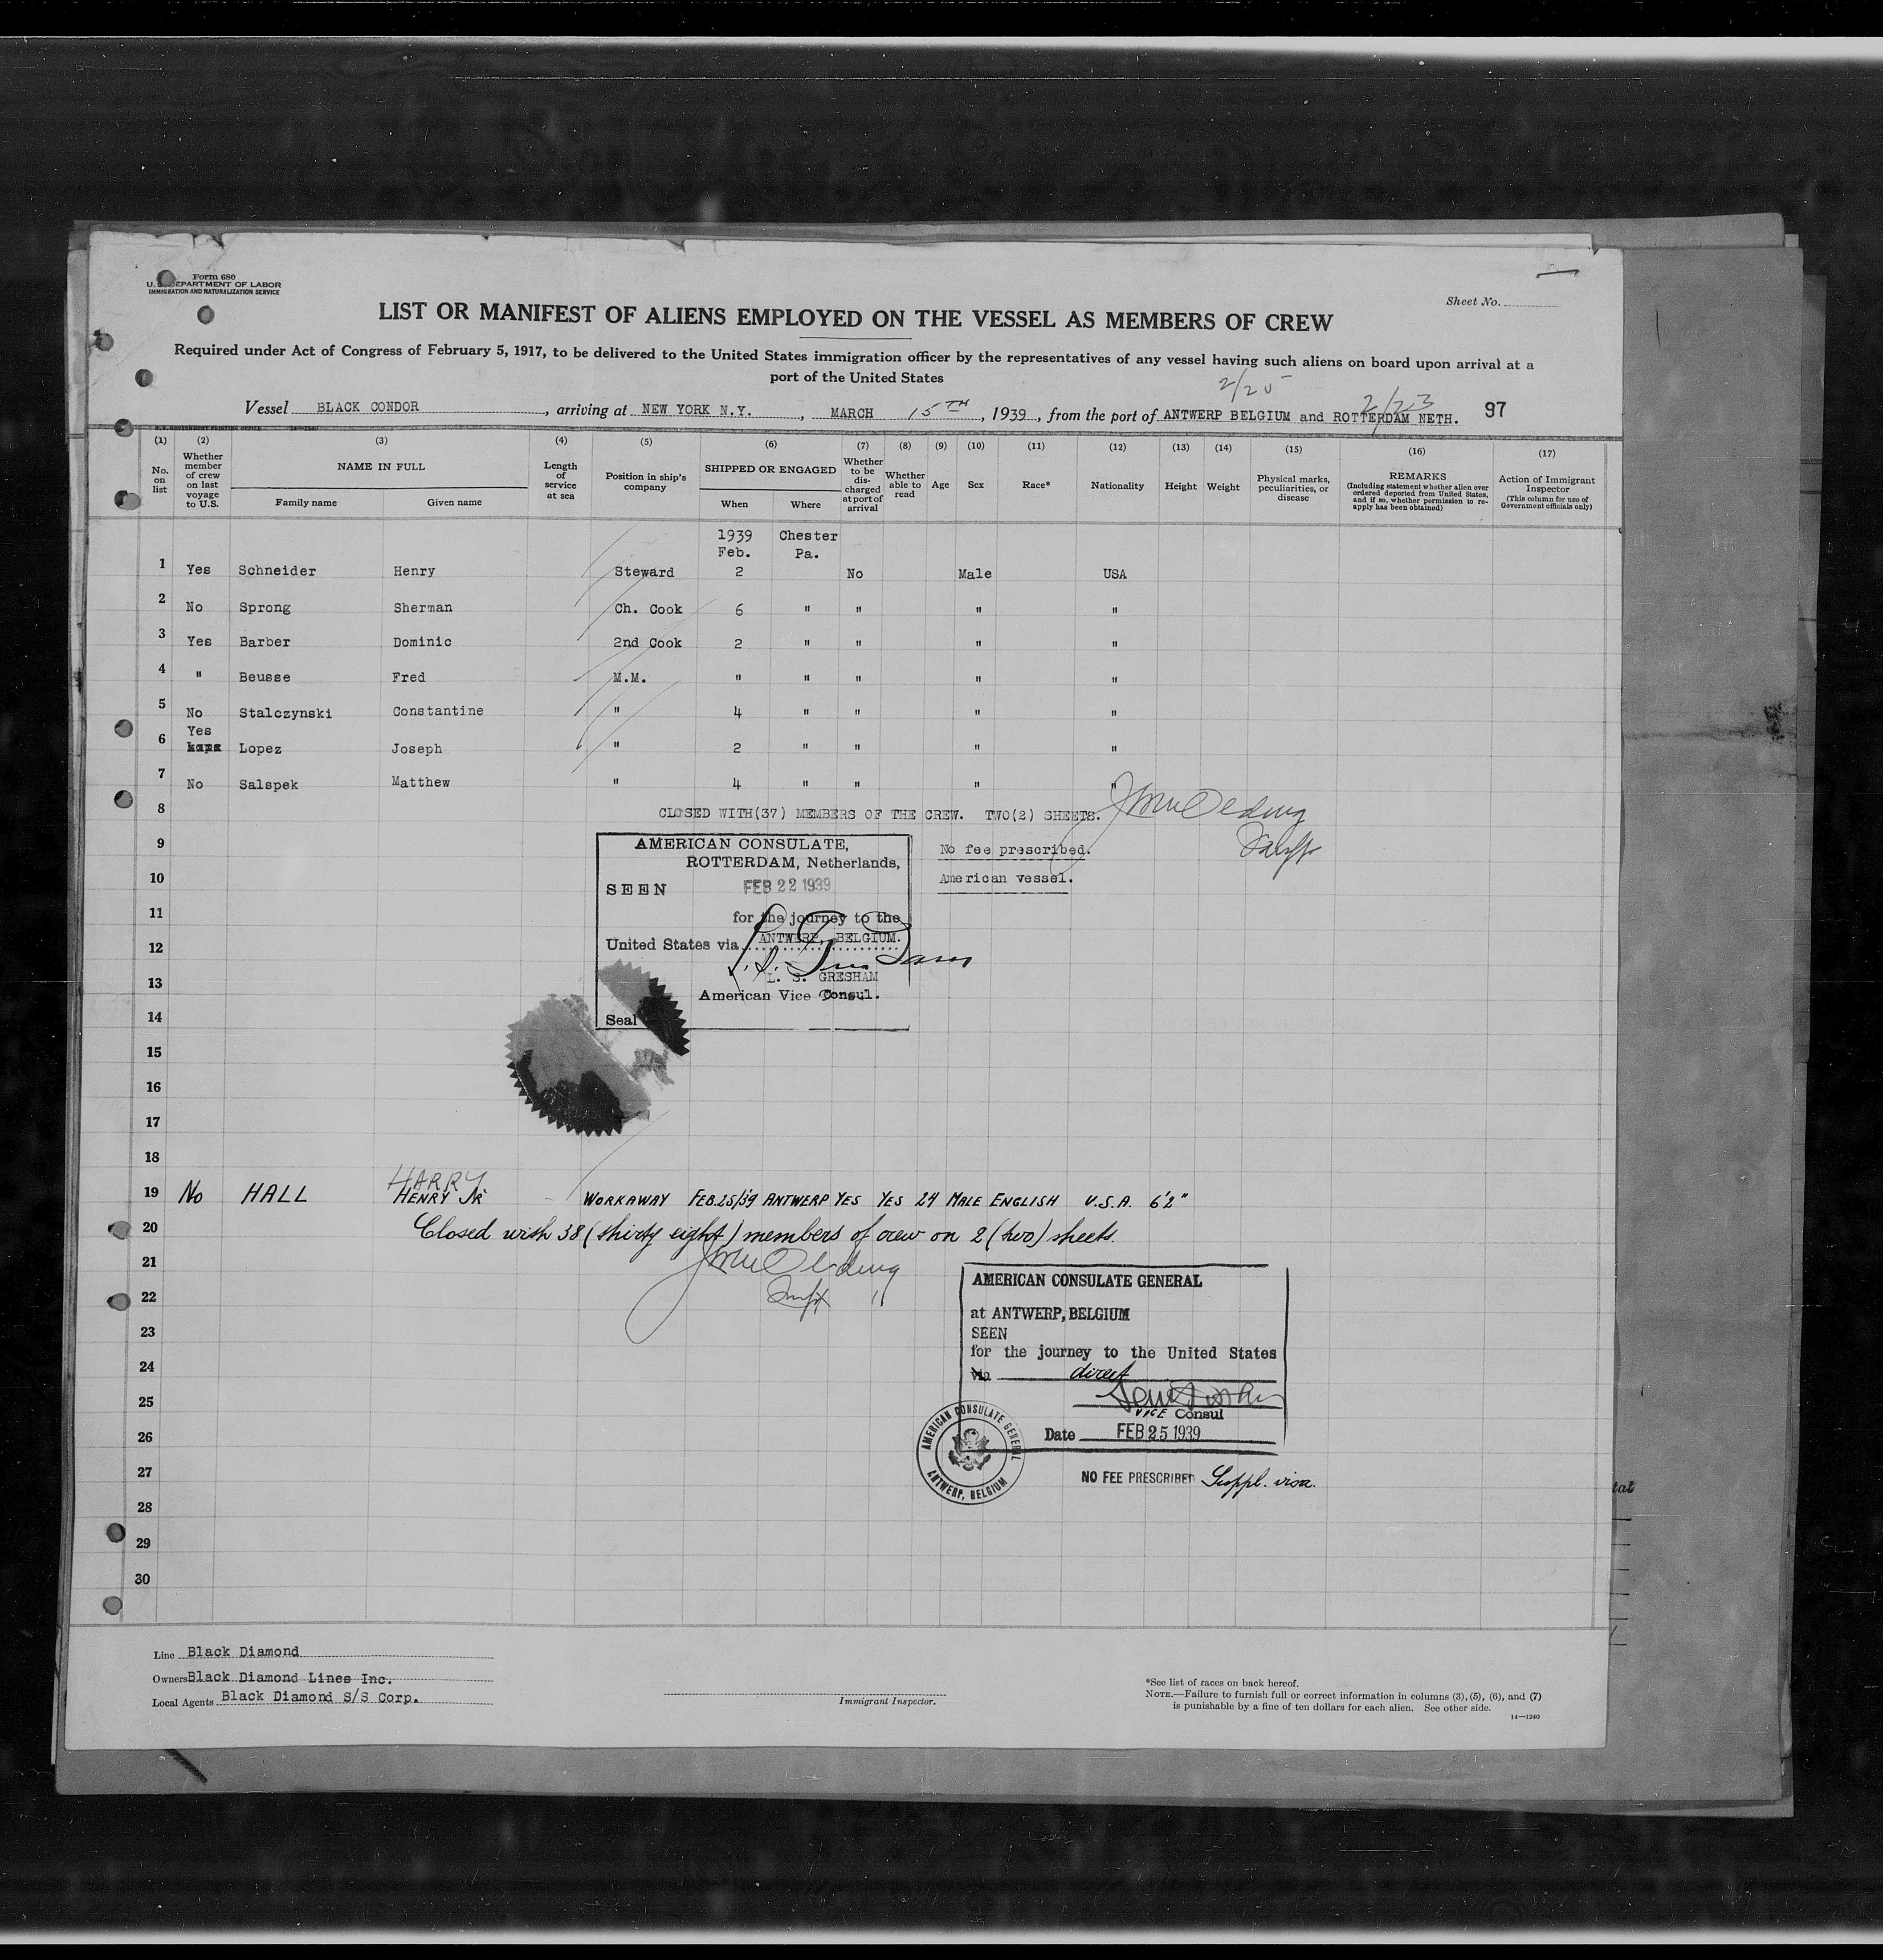 Form 680
U.S. DEPARTMENT OF LABOR
IMMIGRATION AND NATURALIZATION SERVICE
Sheet No.
LIST OR MANIFEST OF ALIENS EMPLOYED ON THE VESSEL AS MEMBERS OF CREW
Required under Act of Congress of February 5, 1917, to be delivered to the United States immigration officer by the representatives of any vessel having such aliens on board upon arrival at a
port of the United States
2/25 2/23
Vessel BLACK CONDOR, arriving at NEW YORK N.Y., MARCH 15TH, 1939, from the port of ANTWERP BELGIUM and ROTTERDAM NETH. 97
(1) (2) (3) (4) (5) (6) (7) (8) (9) (10) (11) (12) (13) (14) (15) (16) (17)
No. on list
Whether member of crew on last voyage to U.S.
NAME IN FULL
Family name Given name
Length of service at sea
Position in ship's company
SHIPPED OR ENGAGED
When Where
Whether to be discharged at port of arrival
Whether able to read
Age
Sex
Race*
Nationality
Height
Weight
Physical marks, peculiarities, or disease
REMARKS
(Including statement whether alien ever ordered deported from United States, and if so, whether permission to re-apply has been obtained)
Action of Immigrant Inspector
(This column for use of Government officials only)
1939 Chester
Feb. Pa.
1 Yes Schneider Henry Steward 2 No Male USA
2 No Sprong Sherman Ch. Cook 6 " " " "
3 Yes Barber Dominic 2nd Cook 2 " " " "
4 " Beusse Fred M.M. " " " " "
5 No Stalczynski Constantine " 4 " " " "
Yes
6 Lopez Joseph " 2 " " " "
7 No Salspek Matthew " 4 " " " "
8 CLOSED WITH(37) MEMBERS OF THE CREW. TWO(2) SHEETS.
9
10
11
12
13
14
15
16
17
18
AMERICAN CONSULATE,
ROTTERDAM, Netherlands,
SEEN FEB 22 1939
for the journey to the
United States via ANTWERP, BELGIUM.
L. S. GRESHAM
American Vice Consul.
Seal
No fee prescribed.
American vessel.
HARRY
19 No HALL HENRY JR WORKAWAY FEB.25/39 ANTWERP YES YES 24 MALE ENGLISH U.S.A. 6'2"
20 Closed with 38 (thirty eight) members of crew on 2 (two) sheets.
21
22
23
24
25
26
27
28
29
30
AMERICAN CONSULATE GENERAL
at ANTWERP, BELGIUM
SEEN
for the journey to the United States
via direct
VICE Consul
Date FEB 25 1939
AMERICAN CONSULATE GENERAL
ANTWERP, BELGIUM
NO FEE PRESCRIBED Suppl. visa.
Line Black Diamond
Owners Black Diamond Lines Inc.
Local Agents Black Diamond S/S Corp.
Immigrant Inspector.
*See list of races on back hereof.
NOTE.—Failure to furnish full or correct information in columns (3), (5), (6), and (7)
is punishable by a fine of ten dollars for each alien. See other side.
14—1240